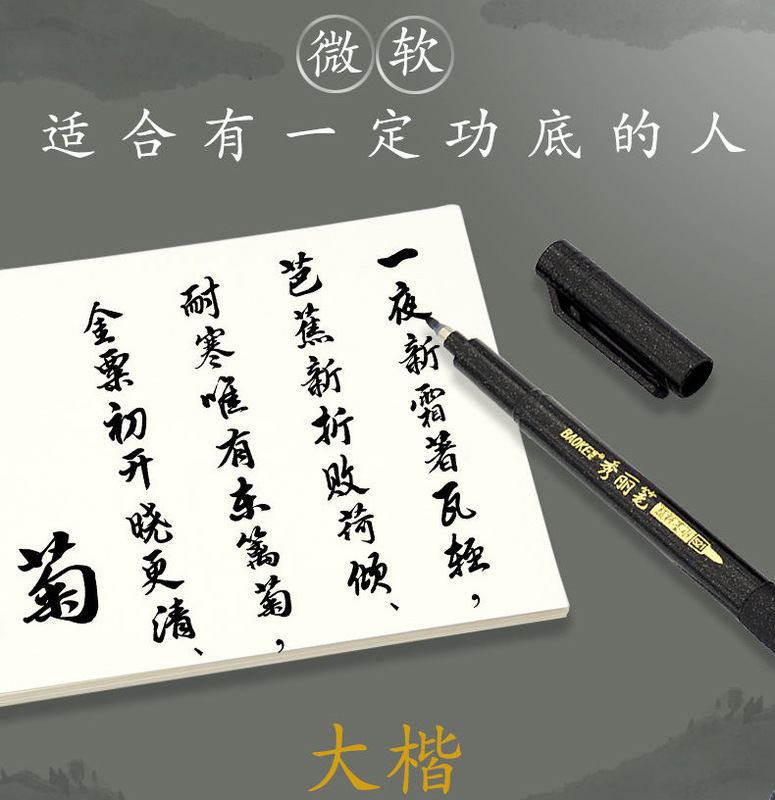 微软
适合有一定功底的人
一夜新霜著瓦轻，
芭蕉新折败荷倾、
耐寒唯有东篱菊，
金粟初开晓更清、
菊
BAOKEE
秀丽笔
大楷